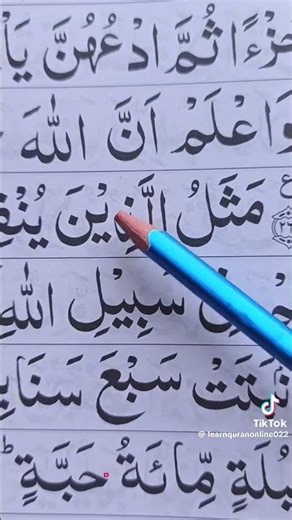 جُزْءًا ثُمَّ ادْعُهُنَّ يَاْ
وَاعْلَمْ اَنَّ اللّٰهَ
مَثَلُ الَّذِيْنَ يُنْفِ
سَبِيْلِ اللّٰهِ
نْۢبَتَتْ سَبْعَ سَنَابِ
بُلَةٍ مِّائَةُ حَبَّةٍ ؕ
TikTok
@learnquranonline022